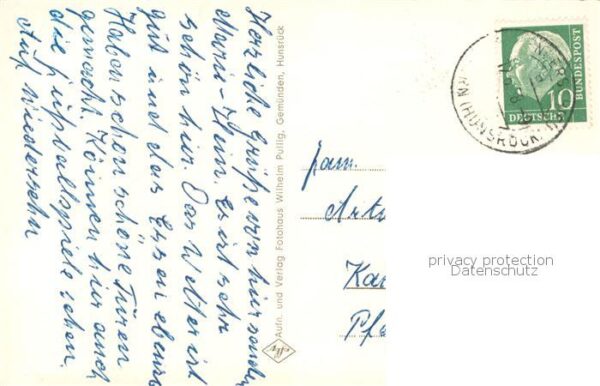 Herzliche Grüße von hier senden
Marie-Hein. Es ist sehr
schön hier. Das Wetter ist
gut und das Essen ebens
Haben schon schöne Türen
gemacht. Können hier auch
die Fußballspiele sehen.
Auf Wiedersehn
Aufn. und Verlag Fotohaus Wilhelm Pullig, Gemünden, Hunsrück
Agfa
10
DEUTSCHE
BUNDESPOST
(HUNSRÜCK)
Fam.
Artu
Ka
Pfa
privacy protection
Datenschutz